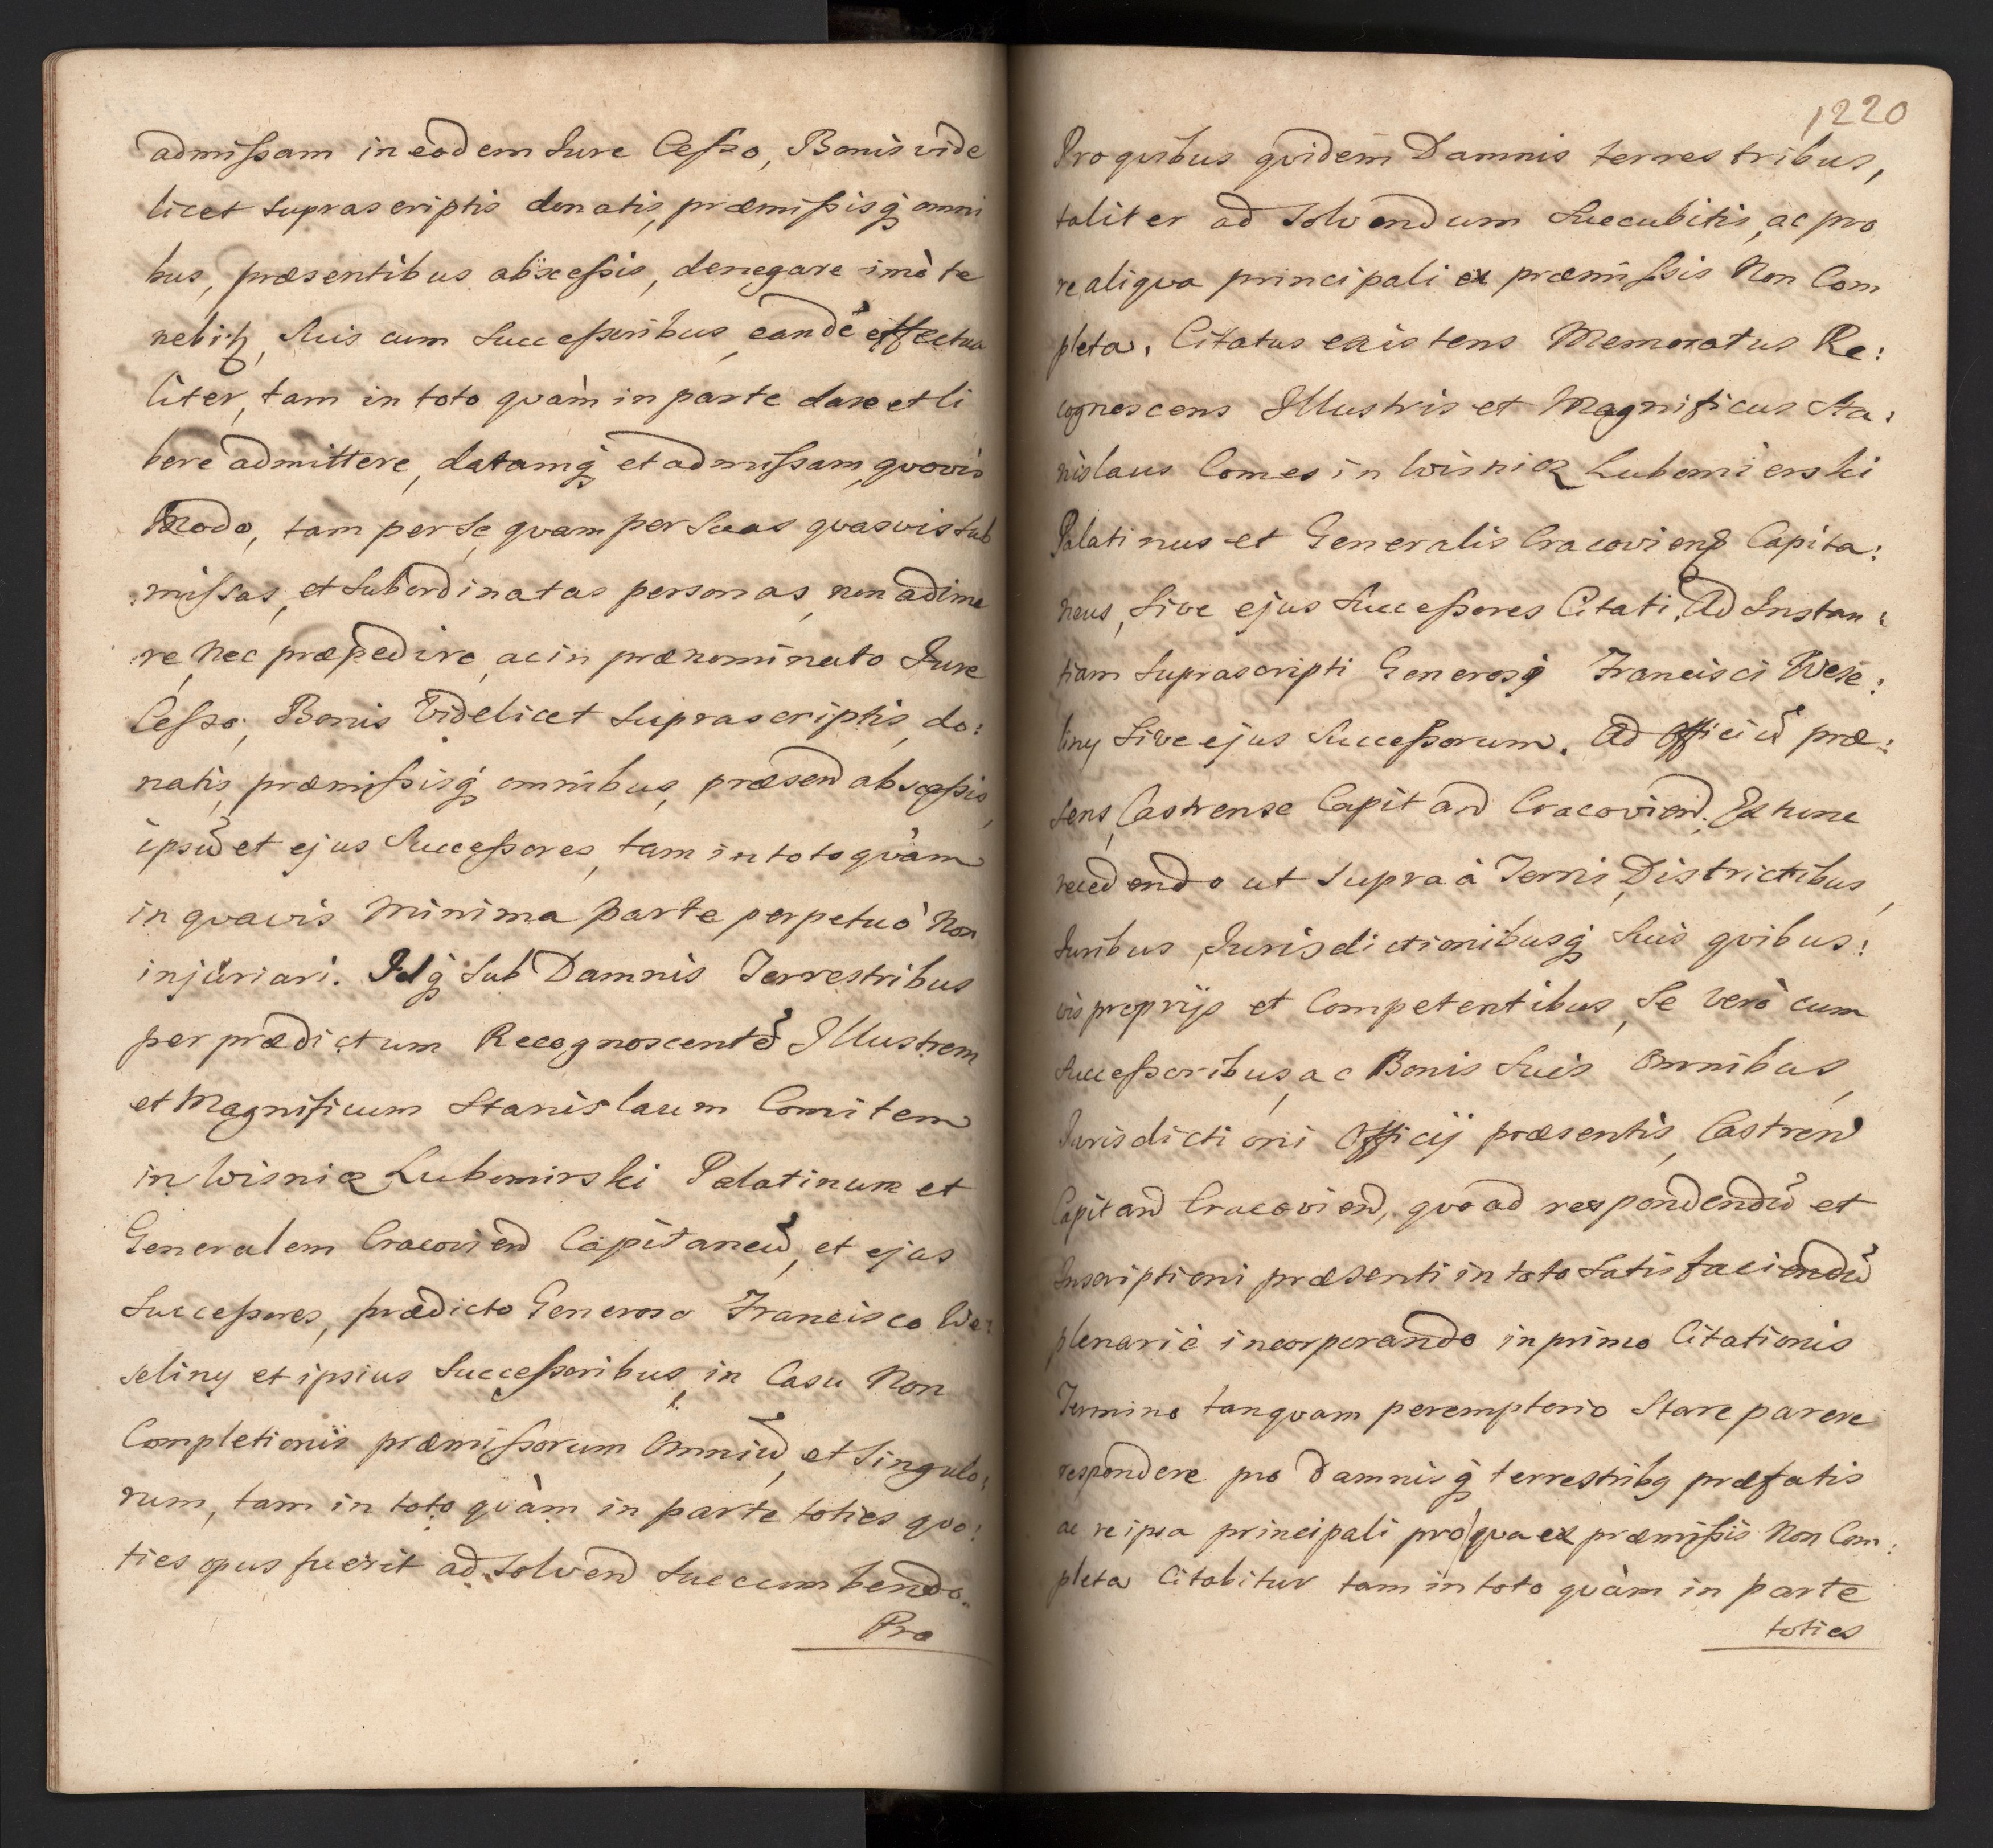 admissam in eodem Jure Cesso, Bonis vide
licet Suprascriptis donatis, præmissisq̃ omni
bus, præsentibus abscessis, denegare imò te
nebitr, Suis cum Successoribus, eandē effectua
liter, tam in toto quàm in parte dare et li
bere admittere, datamq̃ et admissam quovis
Modo, tam per Se quam per Suas quasvis Sub
missas, et Subordinatas personas, non adime
re, Nec præpedire, ac in prænominato Jure
Cesso, Bonis Videlicet Suprascriptis, do:
natis, præmissisq̃ omnibus, præsen abscessis,
ipsū et ejus Successores, tam in toto quàm
in quavis Minima parte perpetuò Non
injuriari. Idq̃ Sub Damnis Terrestribus
per prædictum Recognoscentē Illustrem
et Magnificum Stanislaum Comitem
in Wisnicz Lubomirski Palatinum et
Generalem Cracovien Capitaneū, et ejus
Successores, prædicto Generoso Francisco We:
seliny et ipsius Successoribus, in Casu Non
Completionis præmissorum Omniū, et Singulo:
rum, tam in toto quàm in parte toties quo:
ties opus fuerit ad Solven Succumbendo.
Pro
1220
Pro quibus quidem Damnis terrestribus,
taliter ad Solvendum Succubitis, ac pro
re aliqua principali ex præmissis Non Com
pleta. Citatus existens Memoratus Re:
cognoscens Illustris et Magnificus Sta:
nislaus Comes in Wisnicz Lubomierski
Palatinus et Generalis Cracovien Capita:
neus, Sive ejus Successores Citati. Ad Instan:
tiam Suprascripti Generosi Francisci Wese:
liny Sive ejus Successorum. Ad Officiū præ:
sens, Castrense Capitan Cracovien. Ex tunc
recedendo ut Supra à Terris, Districtibus,
Juribus, Jurisdictionibusq̃ Suis quibus:
vis proprijs et Competentibus, Se verò cum
Successoribus, ac Bonis Suis Omnibus,
Jurisdictioni Officij præsentis, Castren
Capitan Cracovien, quo ad respondendū et
Inscriptioni præsenti in toto Satisfaciendū
plenariè incorporando in primo Citationis
Termino tanquam peremptorio Stare parere
respondere pro Damnisq̃ terrestribq præfatis
ac re ipsa principali pro qua ex præmissis Non Com:
pleta Citabitur tam in toto quàm in parte
toties